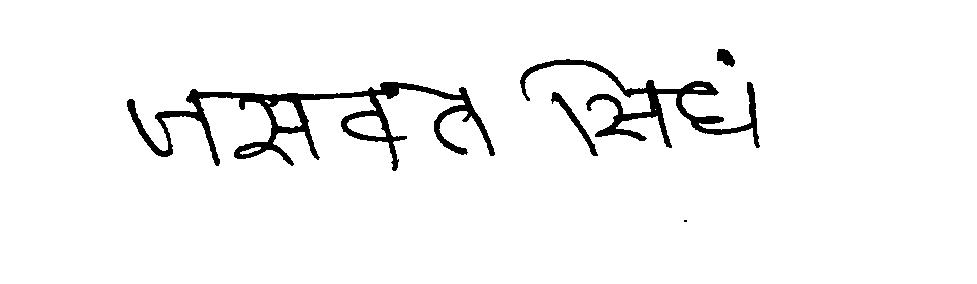 जसवंत सिधं